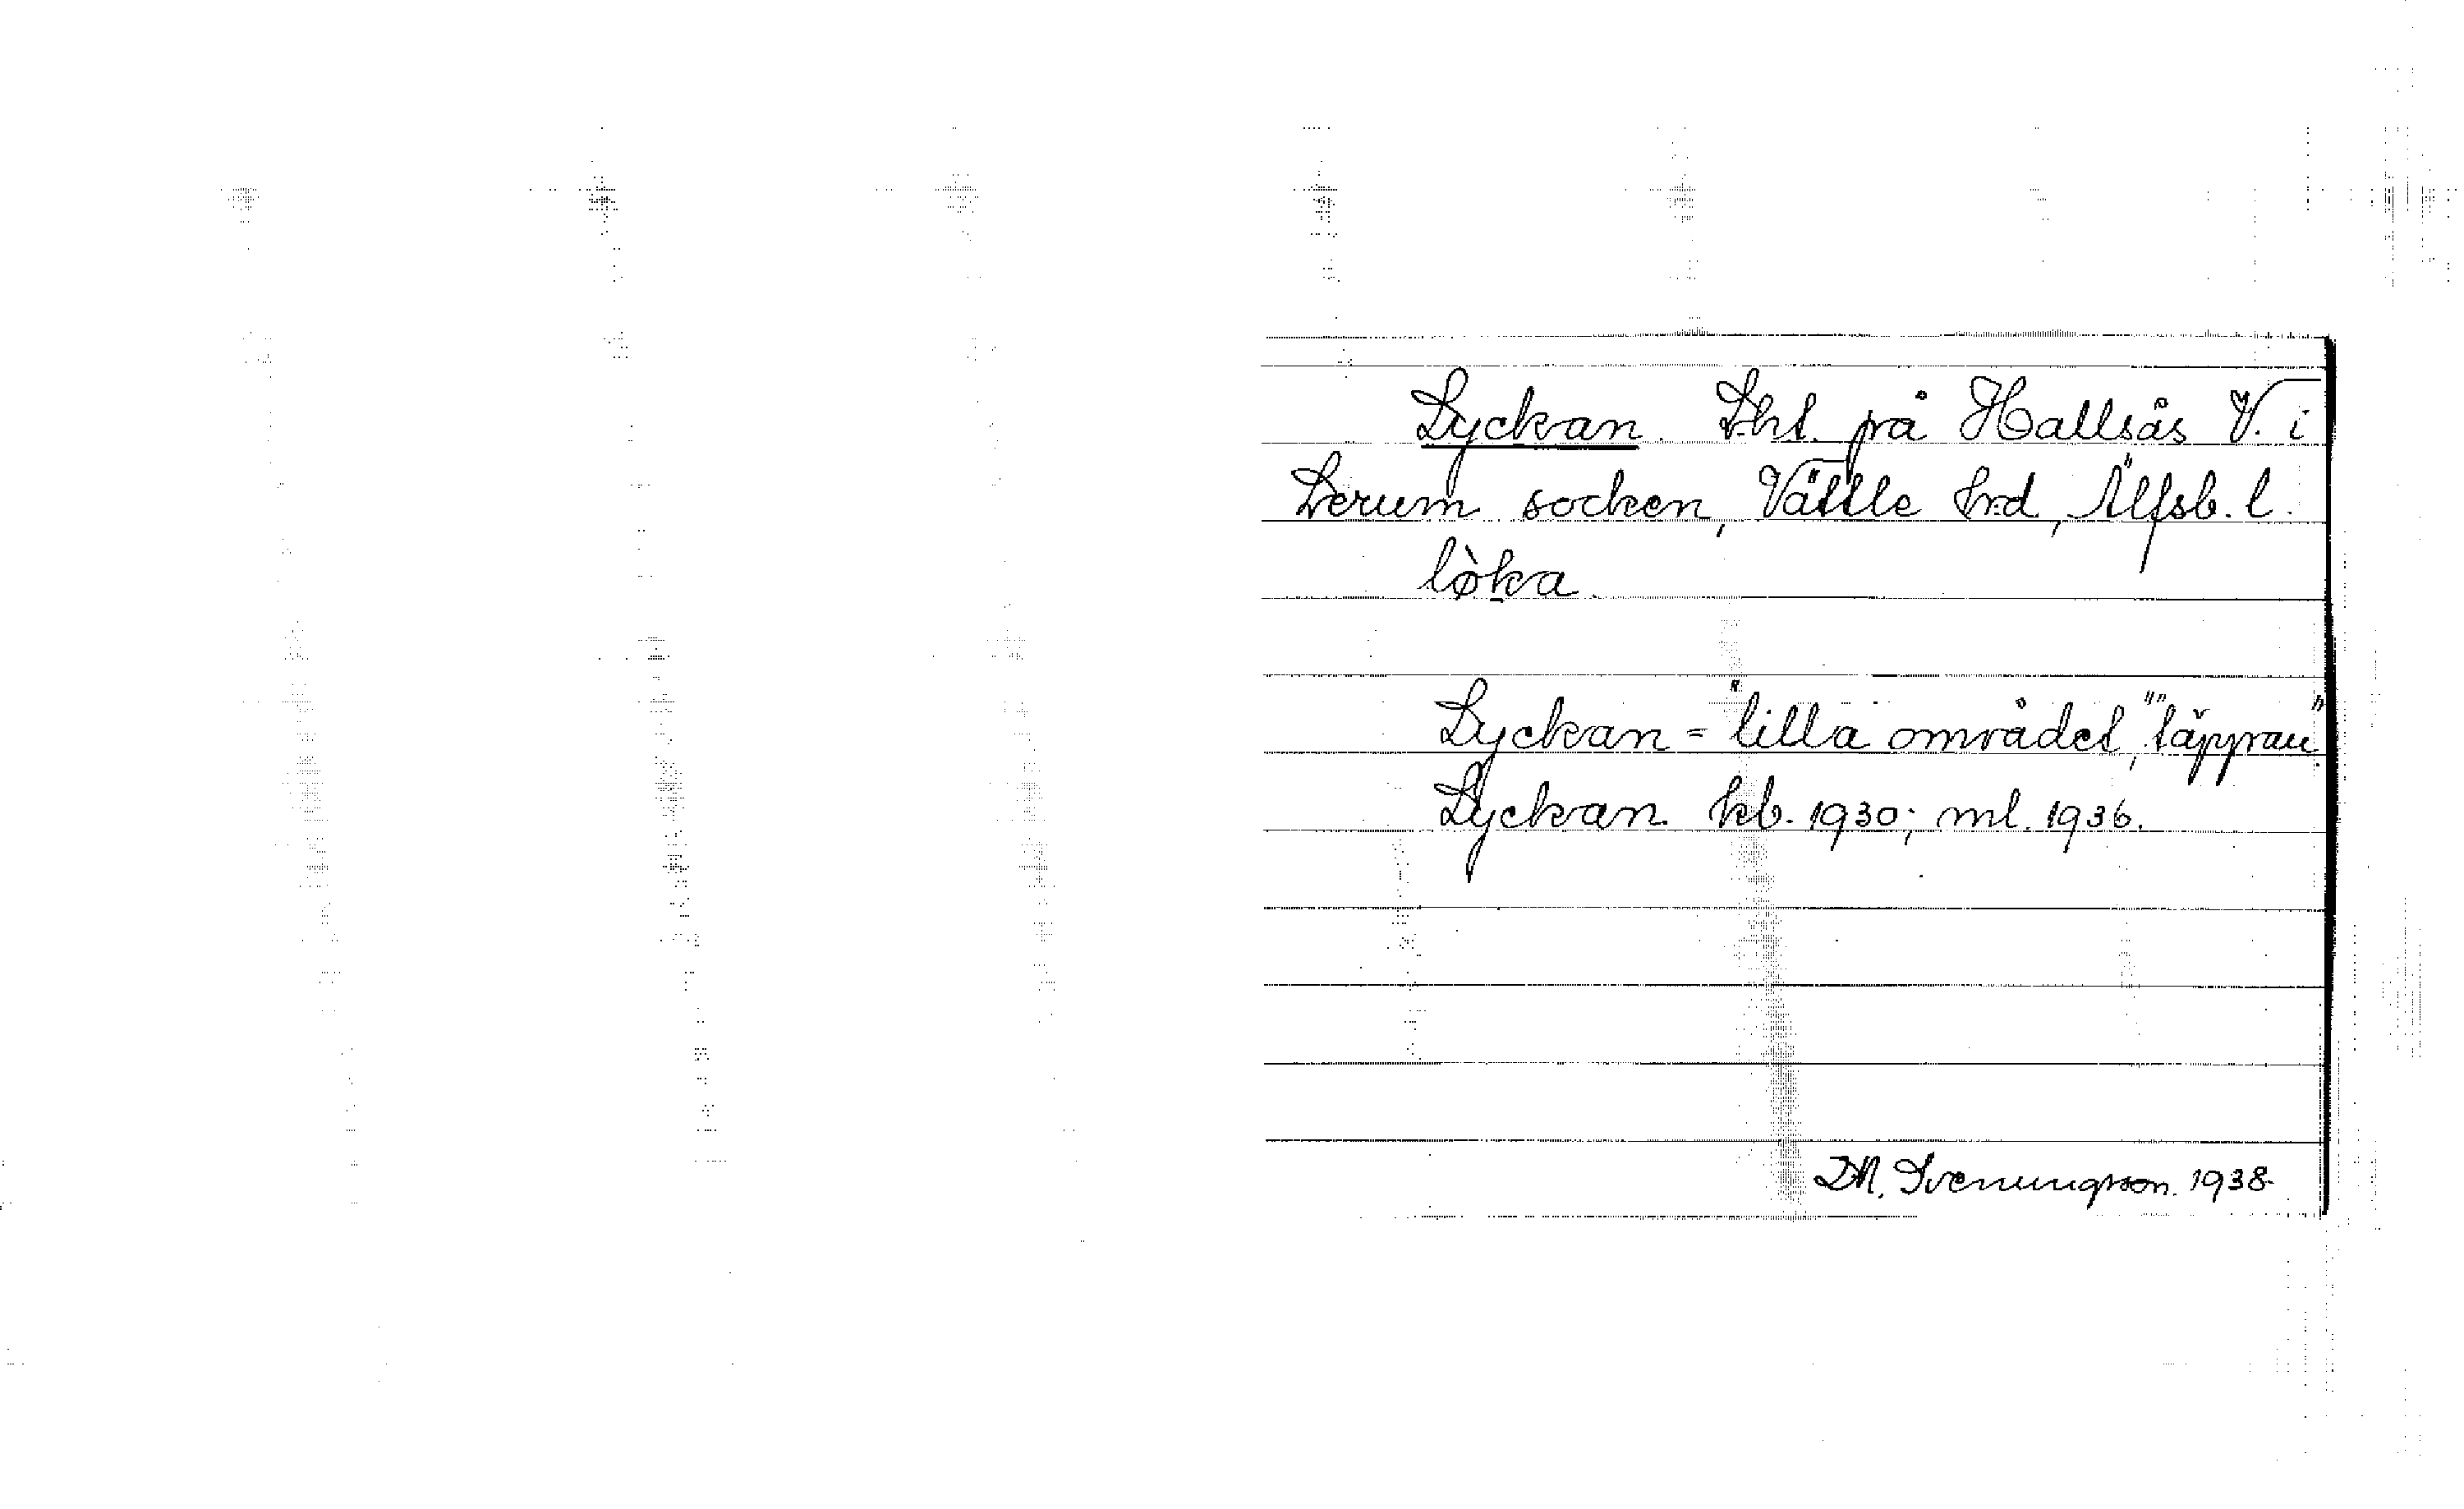 Lyckan. Lht. på Hallsås V. i
Lerum socken, Vättle hrd, Älfsb. l.
lø̀ka
Lyckan = "lilla området", "täppan".
Lyckan kb. 1930; ml. 1936.
D.A. Svenungsson. 1938